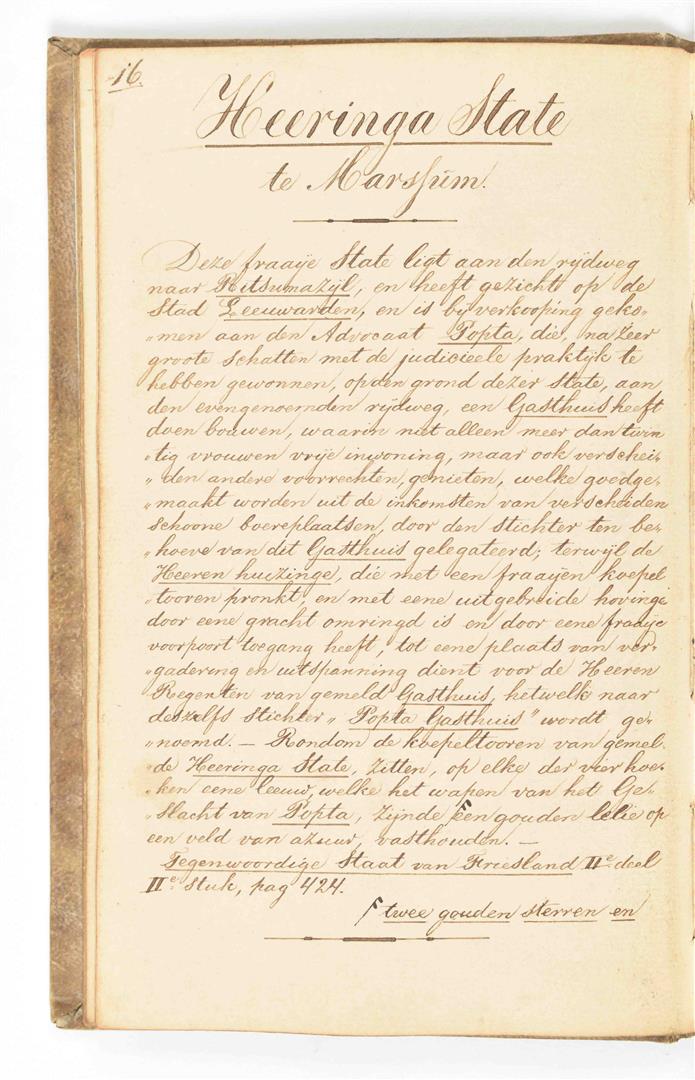 16.
Heeringa State
te Marssum.
Deze fraaije State ligt aan den rijdweg
naar Ritsumazijl, en heeft gezicht op de
Stad Leeuwarden, en is bij verkooping geko„
„men aan den Advocaat Popta, die, na zeer
groote schatten met de judicieele praktijk te
hebben gewonnen, op den grond dezer State, aan
den evengenoemden rijdweg, een Gasthuis heeft
doen bouwen, waarin niet alleen meer dan twin
„tig vrouwen vrije inwoning, maar ook verschei„
„den andere voorrechten, genieten, welke goedge„
„maakt worden uit de inkomsten van verscheiden
schoone boereplaatsen, door den stichter ten be„
„hoeve van dit Gasthuis gelegateerd; terwijl de
Heeren huizinge, die met een fraayen koepel
„tooren pronkt en met eene uitgebreide hovinge
door eene gracht omringd is en door eene fraaije
voorpoort toegang heeft, tot eene plaats van ver„
„gadering en uitspanning dient voor de Heeren
Regenten van gemeld Gasthuis, hetwelk naar
deszelfs stichter „Popta Gasthuis" wordt ge„
„noemd. — Rondom de koepeltooren van gemel„
de Heeringa State, zitten, op elke der vier hoe„
„ken eene leeuw, welke het wapen van het Ge„
„slacht van Popta, zijnde ⌈een gouden lelie op
een veld van azuur, vasthouden. —
Tegenwoordige Staat van Friesland IIe deel
IIe stuk, pag 424.
⌈twee gouden sterren en